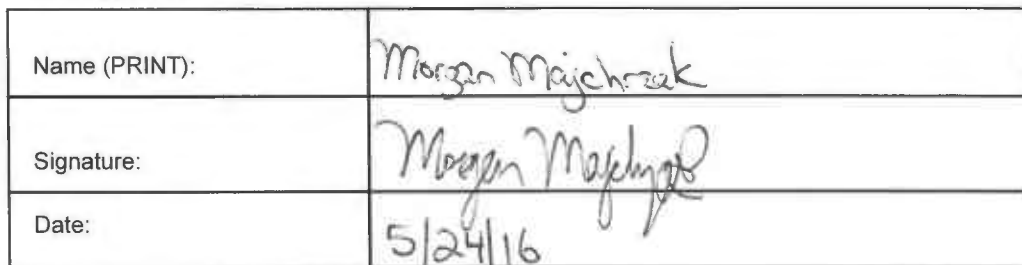 Name (PRINT): Morgan Majchrzak
Signature: Morgan Majchrzak
Date: 5/24/16